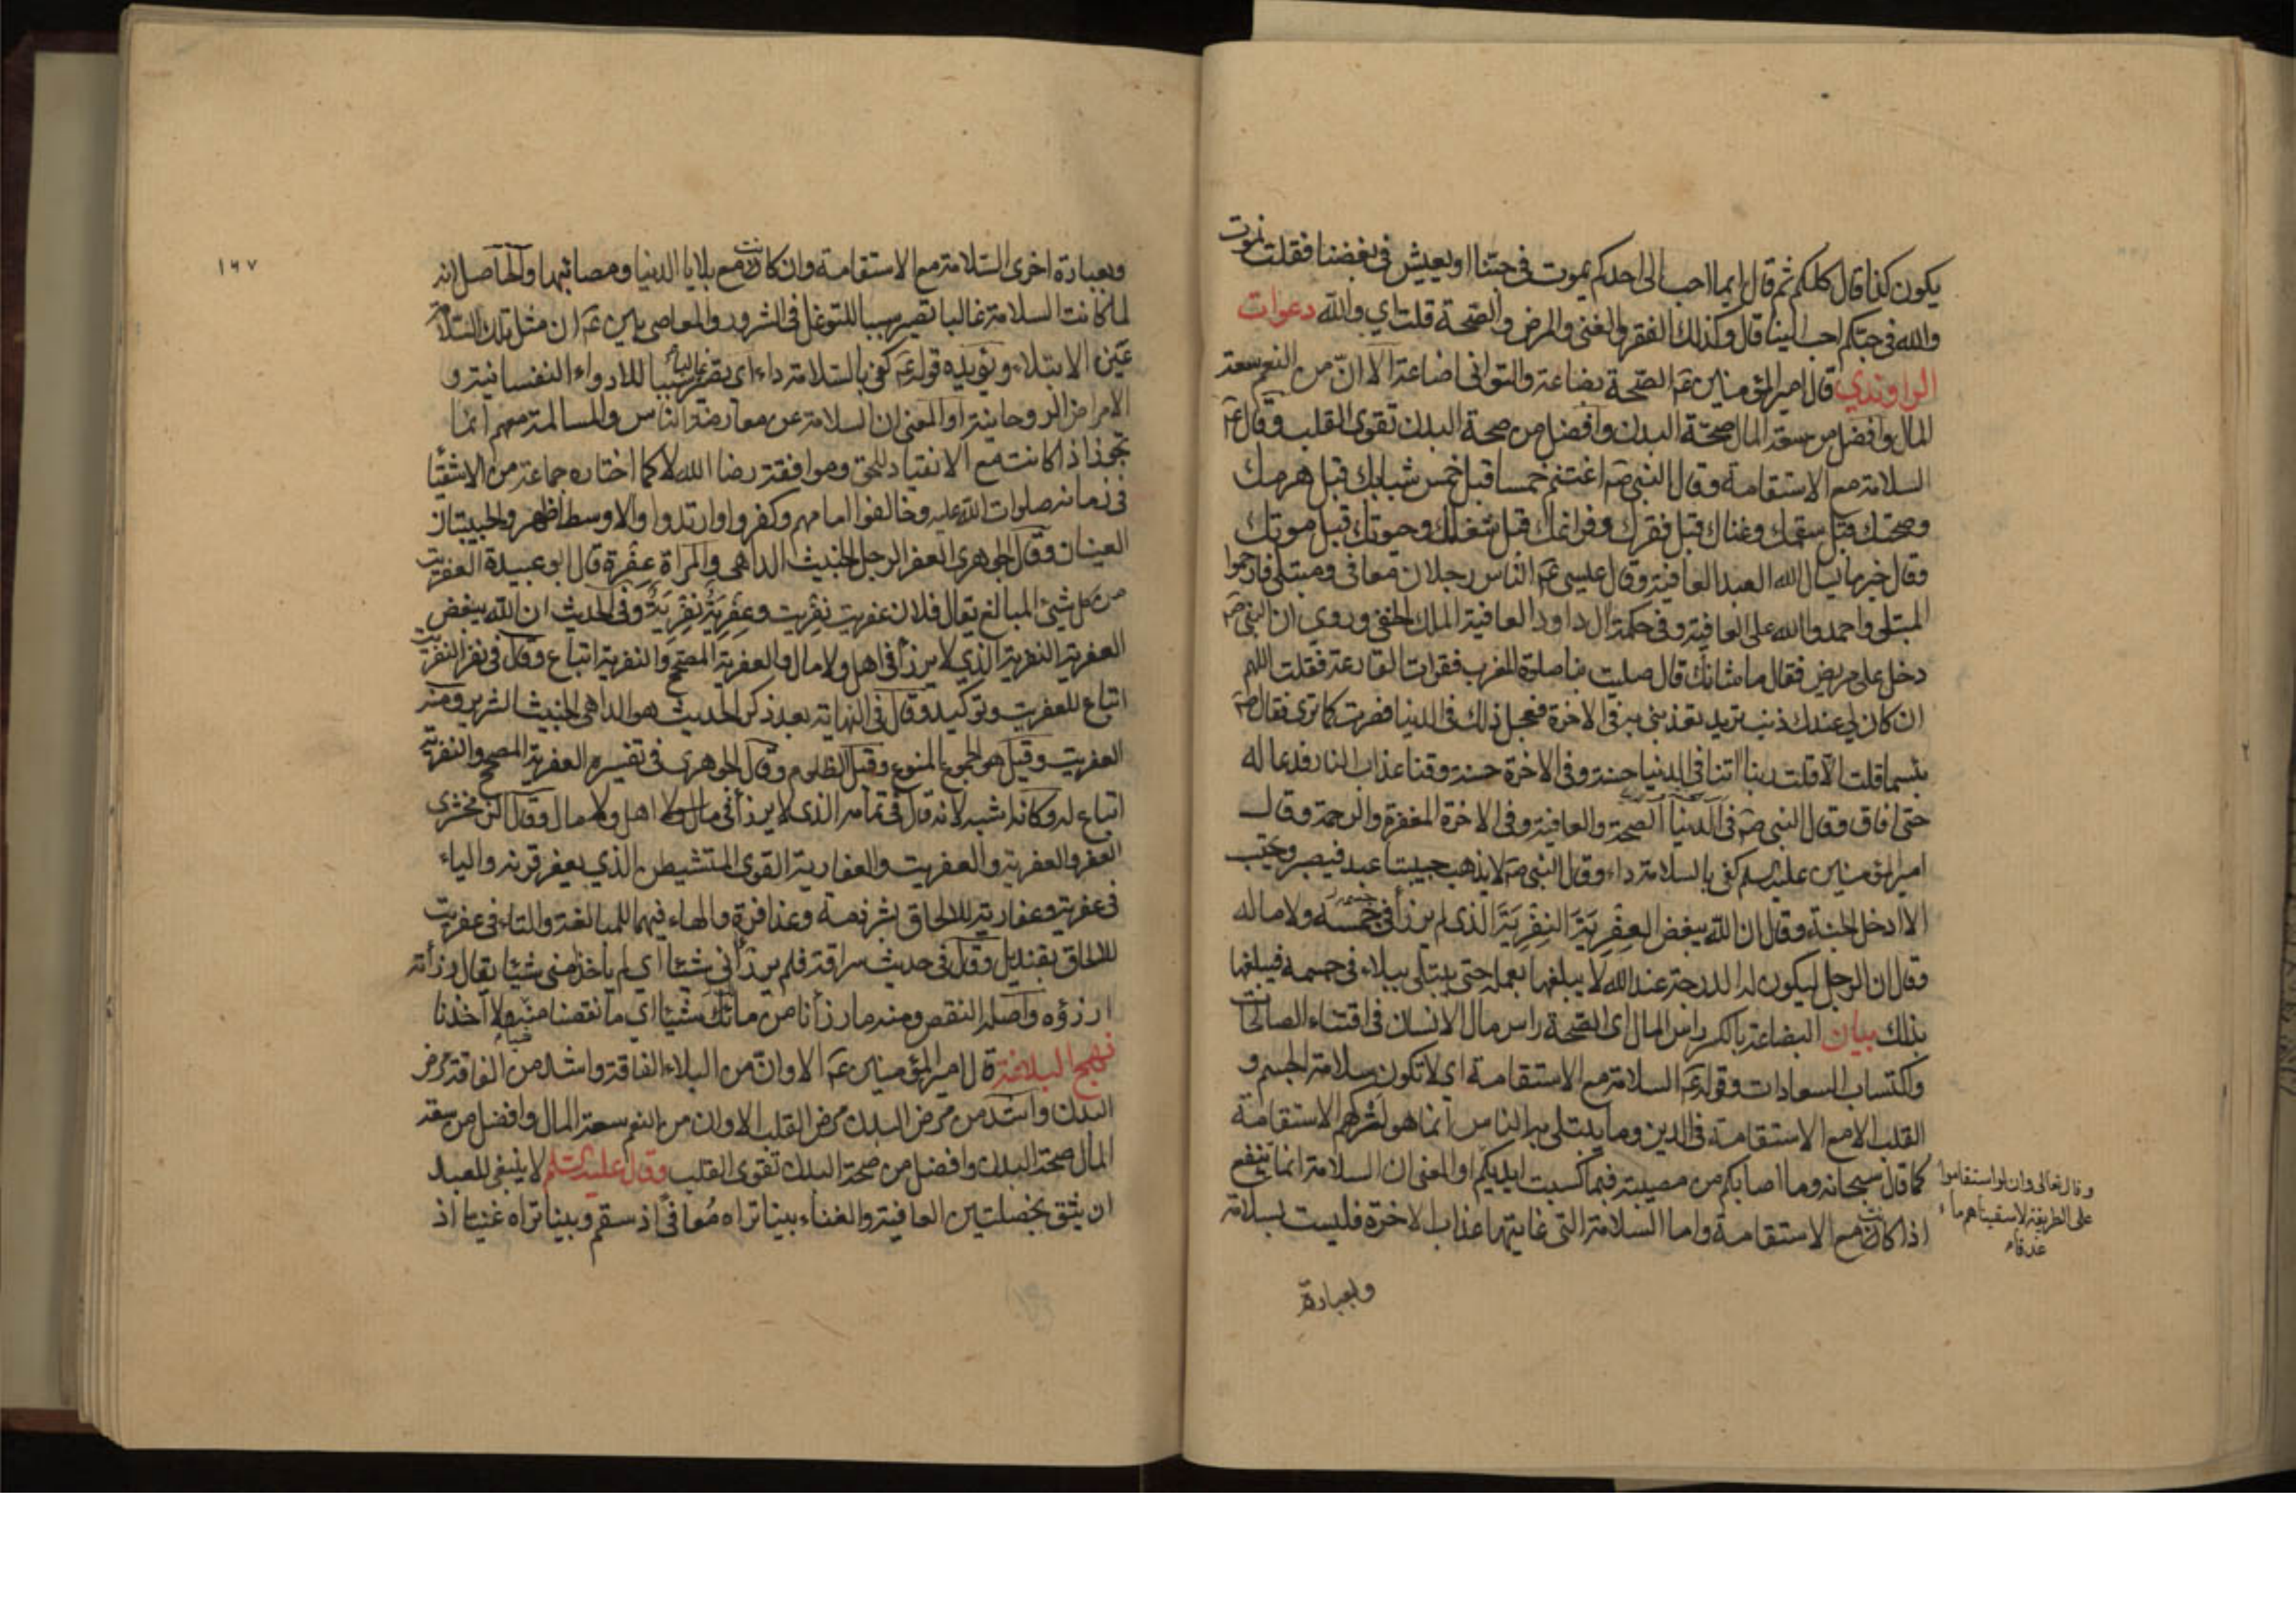 يكون كذا قال كلكم ثم قال ايما احب الى احدكم يموت في حبنا او يعيش في بغضنا فقلت نموت
والله في حبكم احب الينا قال وكذلك الفقر والغنى والمرض والصحة قلت اي والله دعوات
الراوندي قال امير المؤمنين عم الصحة بضاعة والتواني اضاعة الا ان من النعم سعة
المال وافضل من سعة المال صحة البدن وافضل من صحة البدن تقوى القلب وقال عم
السلامة مع الاستقامة وقال النبي ص اغتنم خمسا قبل خمس شبابك قبل هرمك
وصحتك قبل سقمك وغناك قبل فقرك وفراغك قبل شغلك وحيوتك قبل موتك
وقال خير ما يسال الله العبد العافية وقال عيسى عم الناس رجلان معافى ومبتلى فارحموا
المبتلى واحمدوا الله على العافية وفي حكمة ال داود العافية الملك الخفي وروي ان النبي ص
دخل على مريض فقال ما شانك قال صليت بنا صلوة المغرب فقرات القارعة فقلت اللهم
ان كان لي عندك ذنب تريد تعذبني به في الاخرة فعجل ذلك في الدنيا فصرت كما ترى فقال ص
بئسما قلت الا قلت ربنا اتنا في الدنيا حسنة وفي الاخرة حسنة وقنا عذاب النار فدعا له
حتى افاق وقال النبي ص في الدنيا الصحة والعافية وفي الاخرة المغفرة والرحمة وقال
امير المؤمنين عليه السلم كفى بالسلامة داء وقال النبي ص لا يذهب حبيبتا عبد فيصبر ويحتسب
الا ادخل الجنة وقال ان الله يبغض العِفْرِيَةَ النِفْرِيَةَ الذي لم يرزأ في جسمه ولا ماله
وقال ان الرجل ليكون له الدرجة عند الله لا يبلغها بعمله حتى يبتلى ببلاء في جسمه فيبلغها
بذلك بيان البضاعة بالكسر راس المال اي الصحة راس مال الانسان في اقتناء الصالحات
واكتساب السعادات وقوله عم السلامة مع الاستقامة اي لا تكون سلامة الجسم و
القلب الا مع الاستقامة في الدين وما يبتلى به الناس انما هو لتركهم الاستقامة
كما قال سبحانه وما اصابكم من مصيبة فبما كسبت ايديكم او المعنى ان السلامة انما تنفع
اذا كانت مع الاستقامة واما السلامة التي غايتها عذاب الاخرة فليست بسلامة
وقال تعالى وان لو استقاموا
على الطريقة لاسقيناهم ماء
غدقا
وبعبارة
١٦٧
وبعبارة اخرى السلامة مع الاستقامة وان كانت مع بلايا الدنيا ومصائبها والحاصل انه
لما كانت السلامة غالبا تصير سببا للتوغل في الشرور والمعاصي بين عم ان مثل تلك السلامة
عين الابتلاء ويؤيده قوله عم كفى بالسلامة داء اي تصير غالبا سببا للادواء النفسانية و
الامراض الروحانية او المعنى ان السلامة عن معارضة الناس والمسالمة معهم انما
تجوز اذا كانت مع الانقياد للحق وموافقة رضا الله لا كما اختاره جماعة من الاشقياء
في زمانه صلوات الله عليه وخالفوا امامهم وكفروا وارتدوا والاوسط اظهر والحبيبتان
العينان وقال الجوهري العفر الرجل الخبيث الداهي والمراة عِفْرة قال ابو عبيدة العفريت
من كل شيئ المبالغ يقال فلان عفريت نفريت وعِفْرِيَةٌ نِفْرِيَةٌ وفي الحديث ان الله يبغض
العفرية النفرية الذي لا يرزأ في اهل ولا مال والعفرية المصحح والنفرية اتباع وقال في نفر النفريت
اتباع للعفريت وتوكيد وقال في النهاية بعد ذكر الحديث هو الداهي الخبيث الشرير ومنه
العفريت وقيل هو الجموع المنوع وقيل الظلوم وقال الجوهري في تفسيره العفرية المصحح والنفرية
اتباع له وكانه اشبه لانه قال في تمامه الذي لا يرزأ في اهل ولا مال وقال الزمخشري
العفر والعفرية والعفريت والعفارية القوي المتشيطن الذي يعفر قرنه والياء
في عفرية وعفارية للالحاق بشرذمة وعذافرة والهاء فيهما للمبالغة والتاء في عفريت
للالحاق بقنديل وقال في حديث سراقة فلم يرزأني شيئا اي لم ياخذ مني شيئا يقال رزأته
ارزؤه واصله النقص ومنه ما رزأنا من مائك شيئا اي ما نقصنا منه شيئا ولا اخذنا
نهج البلاغة قال امير المؤمنين عم الا وان من البلاء الفاقة واشد من الفاقة مرض
البدن واشد من مرض البدن مرض القلب الا وان من النعم سعة المال وافضل من سعة
المال صحة البدن وافضل من صحة البدن تقوى القلب وقال عليه السلم لا ينبغي للعبد
ان يثق بخصلتين العافية والغناء بينا تراه مُعافىً اذ سقم وبينا تراه غنيا اذ